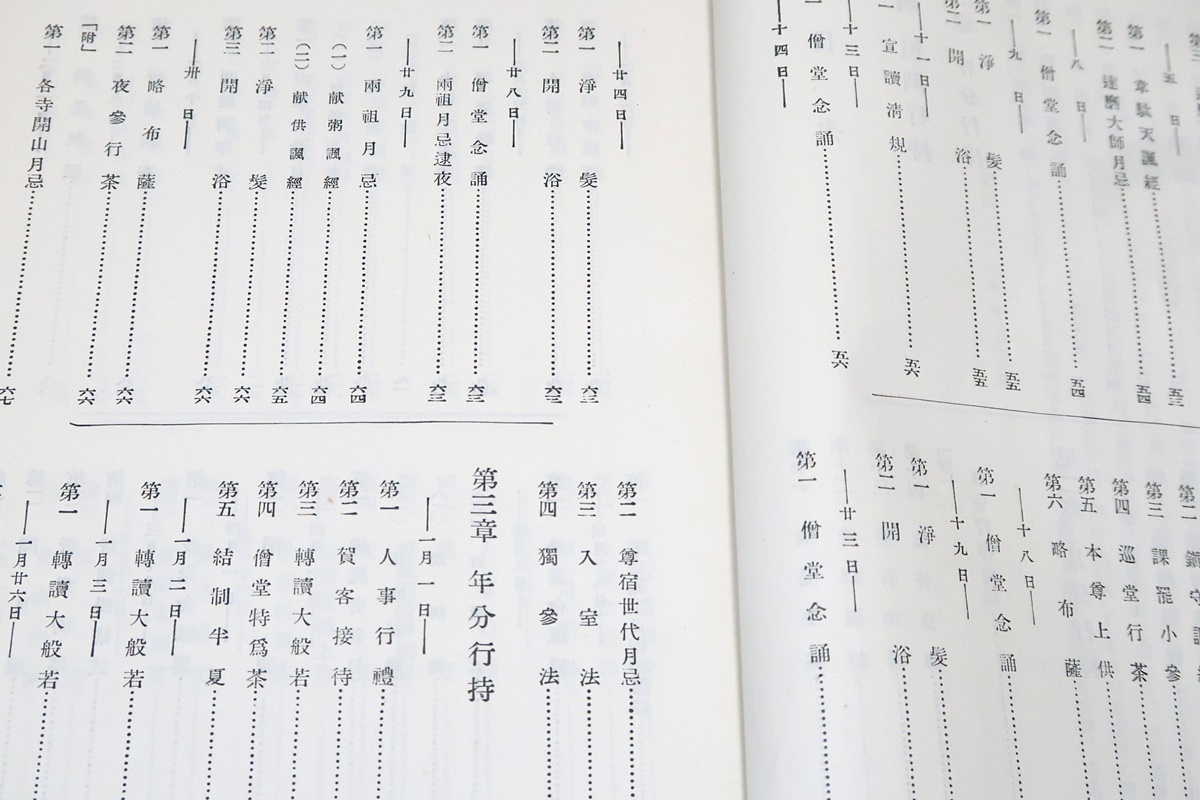 五日
第一 韋駄天諷經 五三
第二 達磨大師月忌 五四
八日
第一 僧堂念誦 五四
九日
第一 淨髮 五五
第二 開浴 五五
十一日
一 宣讀淸規 五六
十三日
一 僧堂念誦 五六
十四日
第三 課罷小參
第四 巡堂行茶
第五 本尊上供
第六 略布薩
十八日
第一 僧堂念誦
十九日
第一 淨髮
第二 開浴
廿三日
第一 僧堂念誦
廿四日
第一 淨髮 六三
第二 開浴 六三
廿八日
第一 僧堂念誦 六三
第二 兩祖月忌逮夜 六三
廿九日
第一 兩祖月忌 六四
(一) 献粥諷經 六四
(二) 献供諷經 六五
第二 淨髮 六六
第三 開浴 六六
卅日
第一 略布薩 六六
第二 夜參行茶 六六
「附」
第一 各寺開山月忌 六七
第二 尊宿世代月忌
第三 入室法
第四 獨參法
第三章 年分行持
一月一日
第一 人事行禮
第二 賀客接待
第三 轉讀大般若
第四 僧堂特爲茶
第五 結制半夏
一月二日
第一 轉讀大般若
一月三日
第一 轉讀大般若
一月廿六日